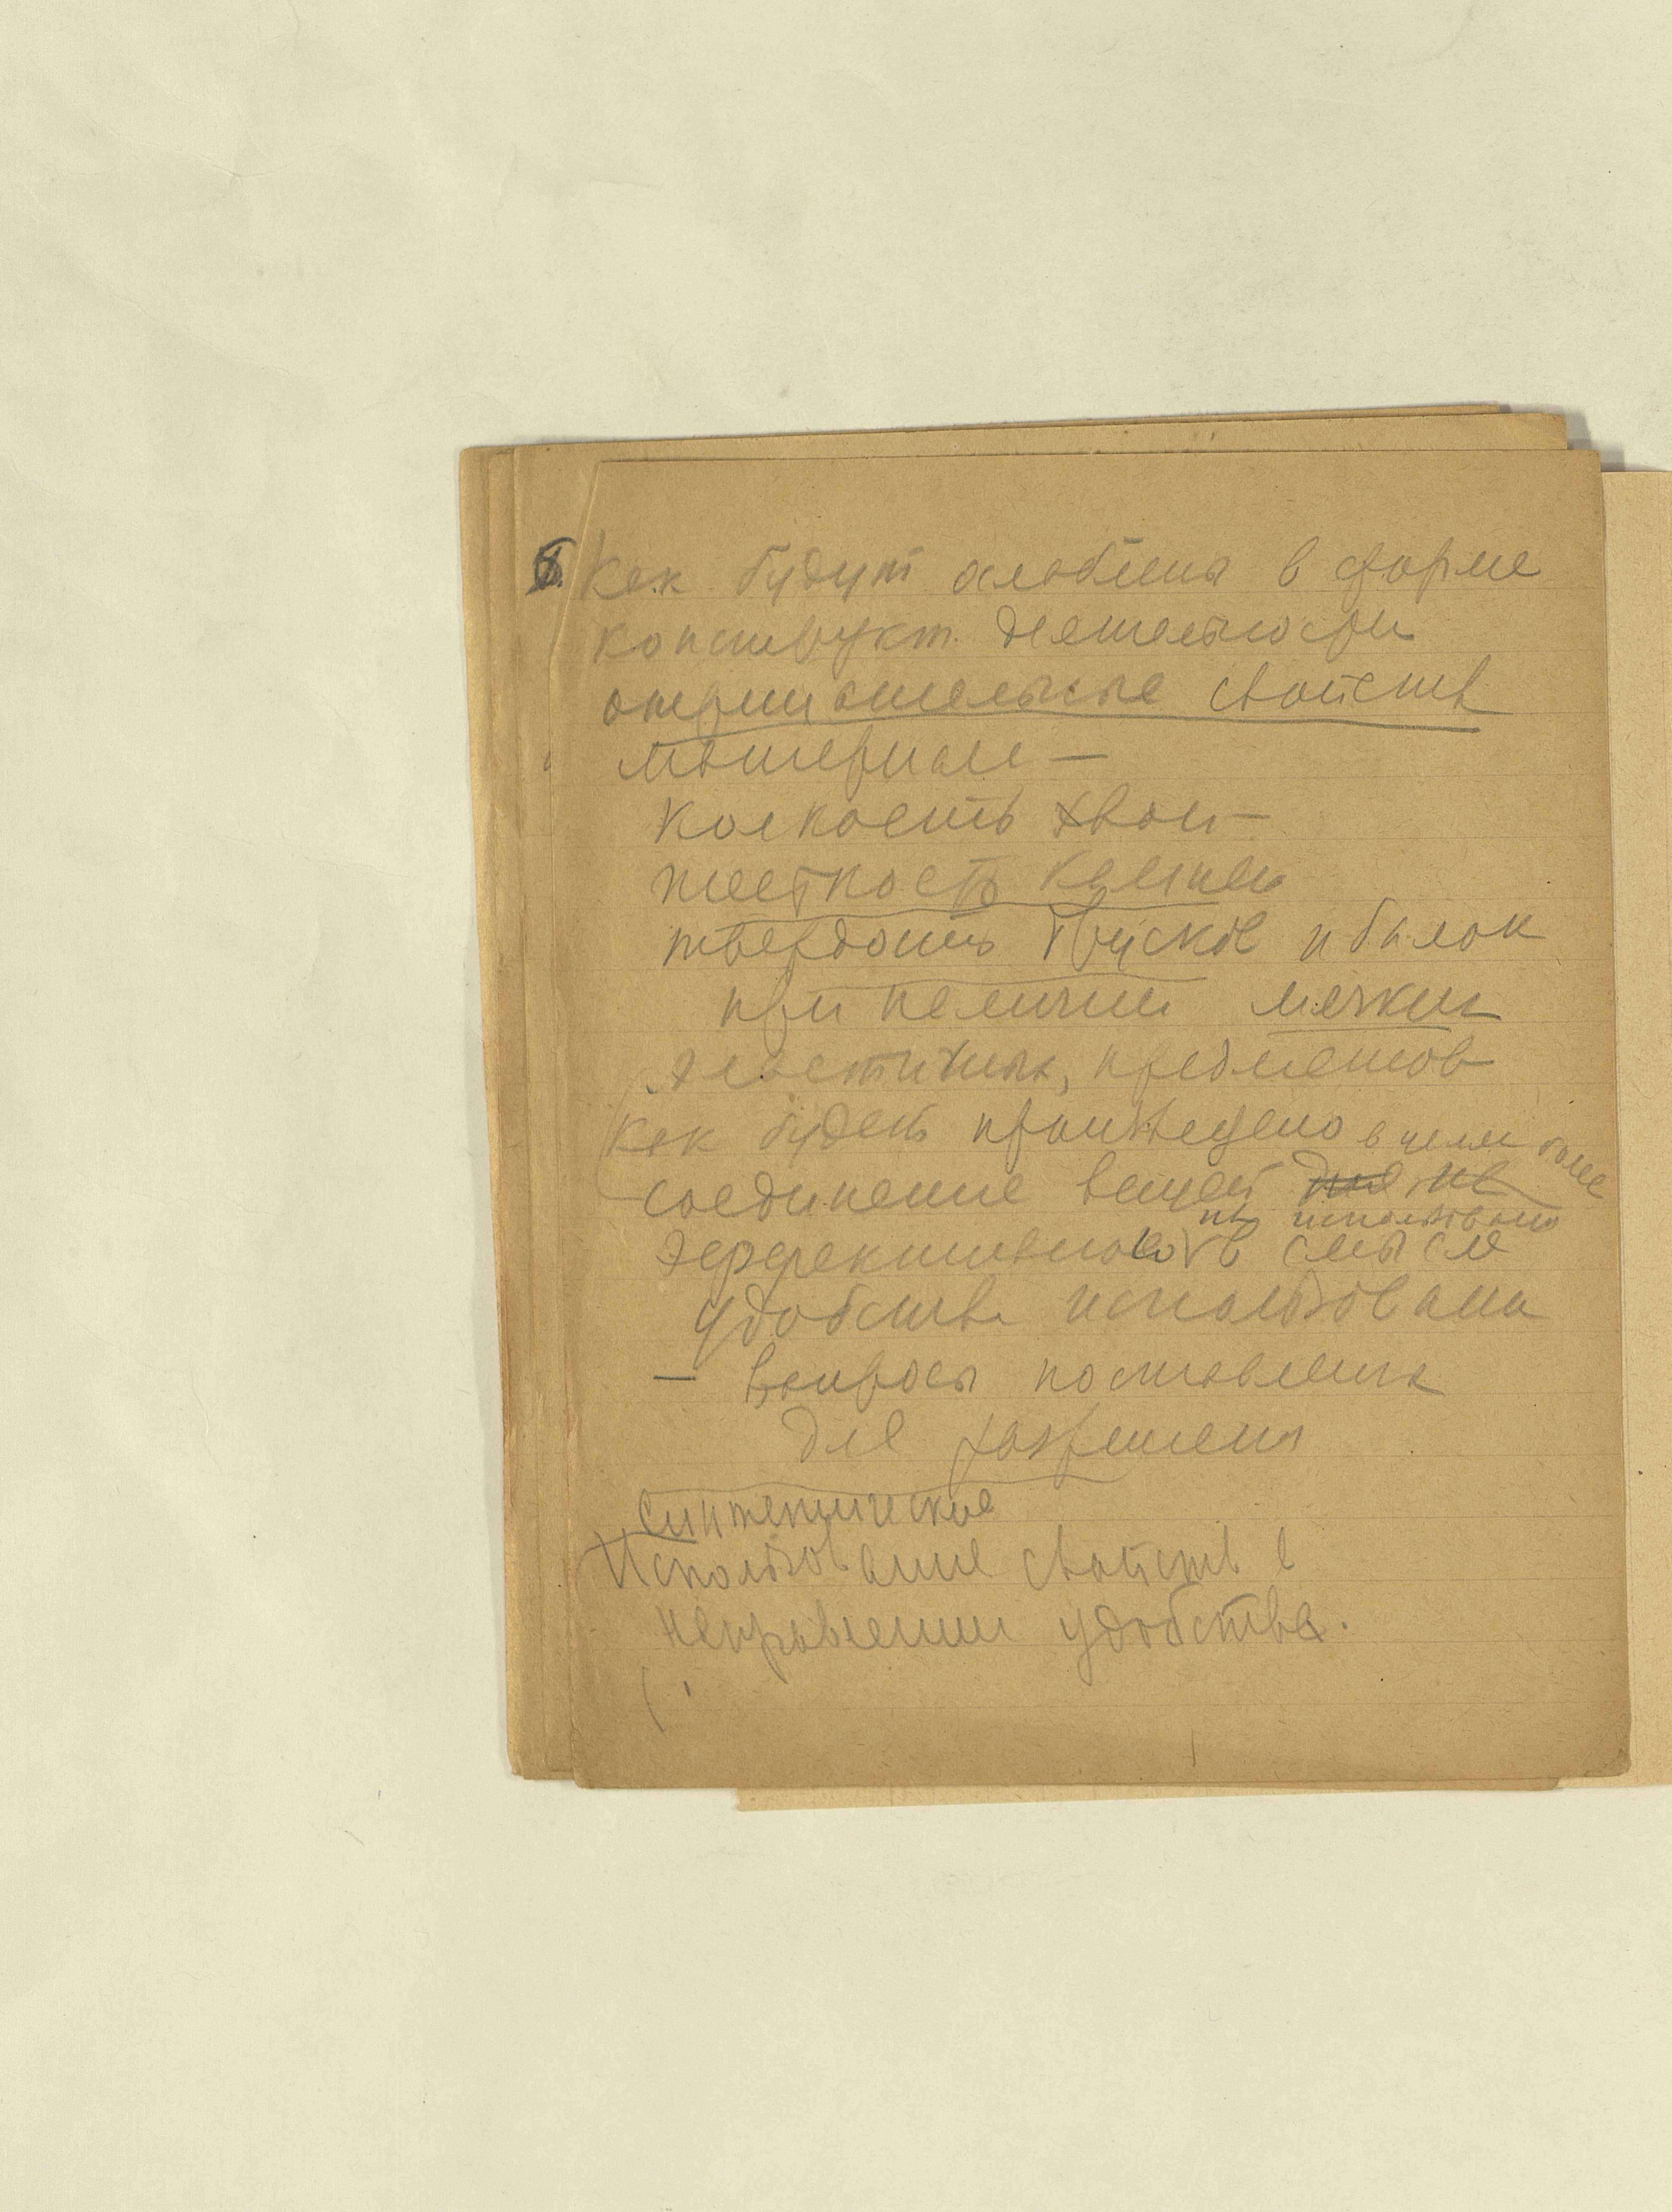 Как будут ослаблены в форме
конструкт. деятельности
отрицательные свойств
материала —
колкость хвои —
жесткость камней
твердость брусков и балок
при наличии мягких
эластичных, предметов
Как будет произведено в целях более
соединение вещей для их
эффективного их использования в смысле
удобства использования
— вопросы поставлены
для разрешения
Синтетическое
Использование свойств в
направлении удобства.